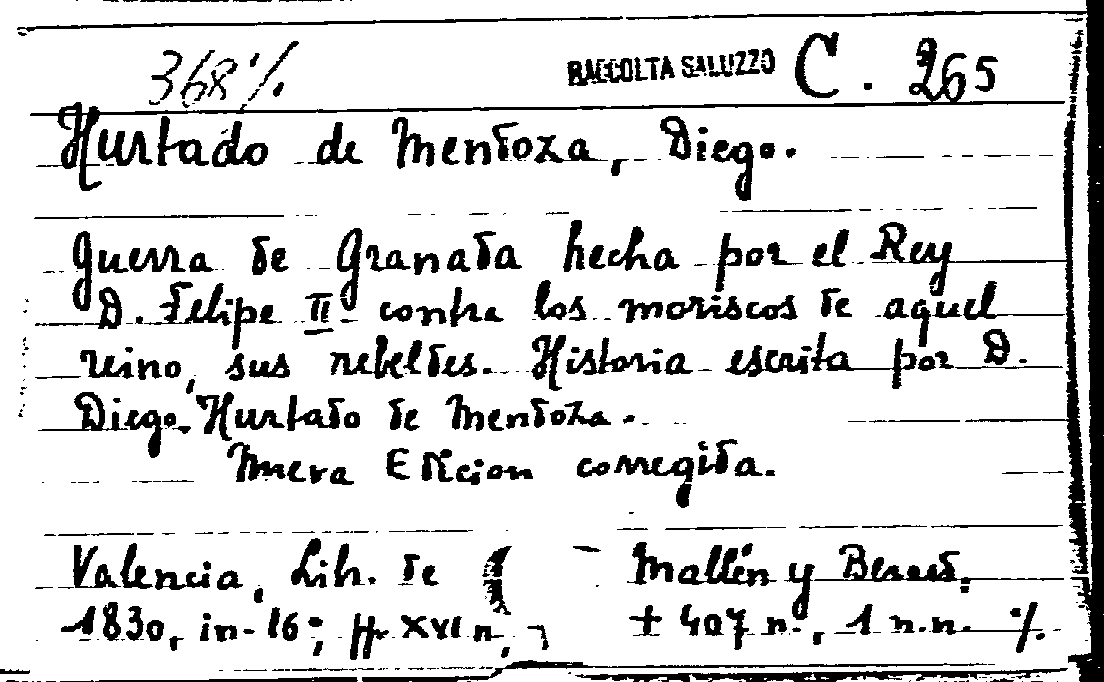 368 ·/. RACCOLTA SALUZZO C. 265
Hurtado de Mendoza, Diego.
Guerra de Granada hecha por el Rey
D. Felipe II contra los moriscos de aquel
reino, sus rebeldes. Historia escrita por D.
Diego Hurtado de Mendoza.
Nueva Edicion corregida.
Valencia, Lib. de Mallén y Berard.
1830, in-16°; pp XVI n, + 407 n., 1 n.n. ·/.